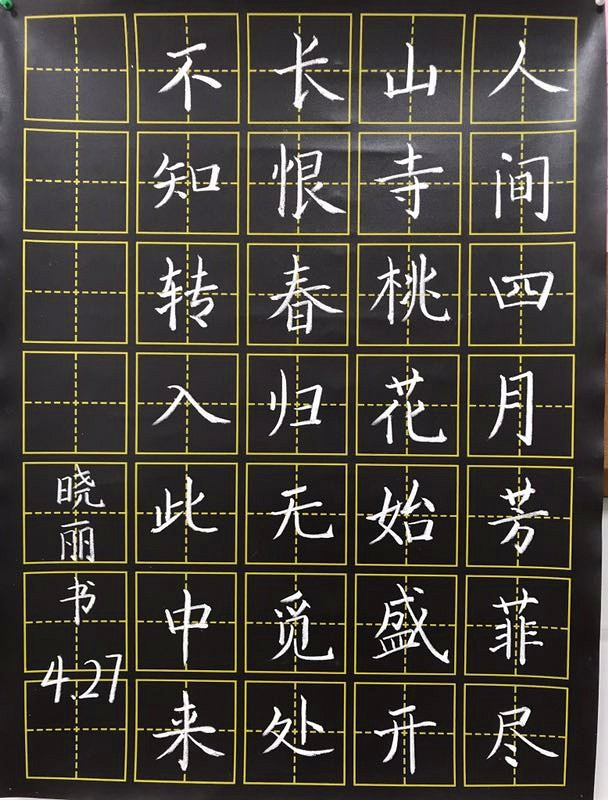 人间四月芳菲尽
山寺桃花始盛开
长恨春归无觅处
不知转入此中来
晓丽书 4.27